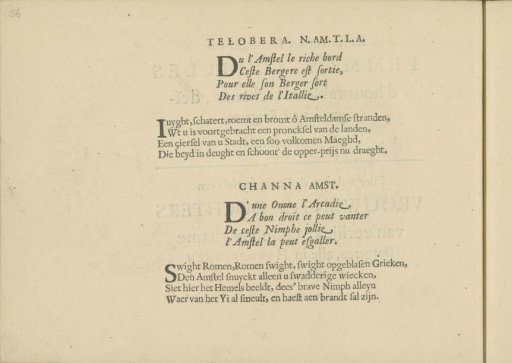 56
TELOBERA. N. AM. T. L. A.
Du l'Amstel le riche bord
Ceste Bergere est sortie,
Pour elle son Berger sort
Des rives de l'Itallie.
Iuyght, schatert, roemt en bromt ô Amsteldamse stranden,
Wt u is voort gebracht een proncksel van de landen,
Een çiersel van u Stadt, een soo volkomen Maeghd,
Die beyd in deught en schoont' de opper-prijs nu draeght.
CHANNA AMST.
D'une Onone l'Arcadie,
A bon droit ce peut vanter
De ceste Nimphe jollie,
l'Amstel la peut esgaller.
Swight Romen, Romen swight, swight opgeblasen Grieken,
Den Amstel snuyckt alleen u swadderige wiecken,
Siet hier het Hemels beeldt, dees' brave Nimph alleyn
Waer van het Yi al smeult, en haest aen brandt sal zijn.